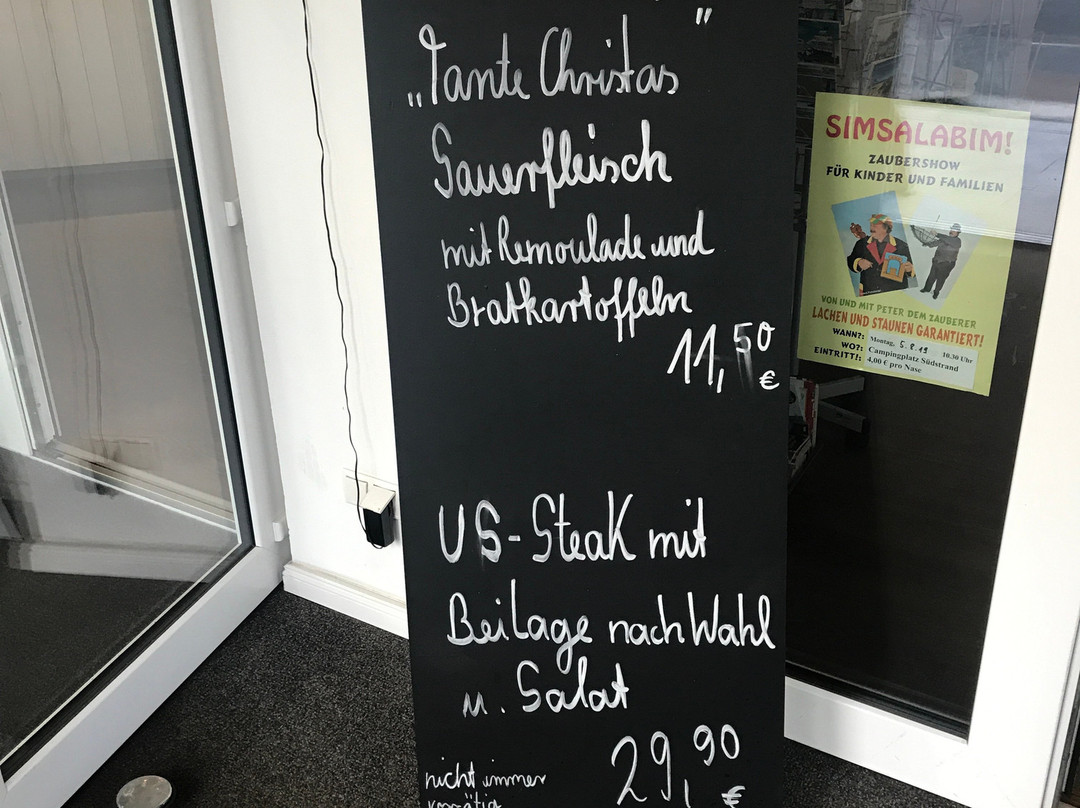 „Tante Christas"
Sauerfleisch
mit Remoulade und
Bratkartoffeln
11,50
€
US-Steak mit
Beilage nach Wahl
u. Salat
29,90
€
nicht immer
vorrätig
SIMSALABIM!
ZAUBERSHOW
FÜR KINDER UND FAMILIEN
VON UND MIT PETER DEM ZAUBERER
LACHEN UND STAUNEN GARANTIERT!
WANN?: Montag, 5.8.19 10.30 Uhr
WO?: Campingplatz Südstrand
EINTRITT!: 4,00 € pro Nase